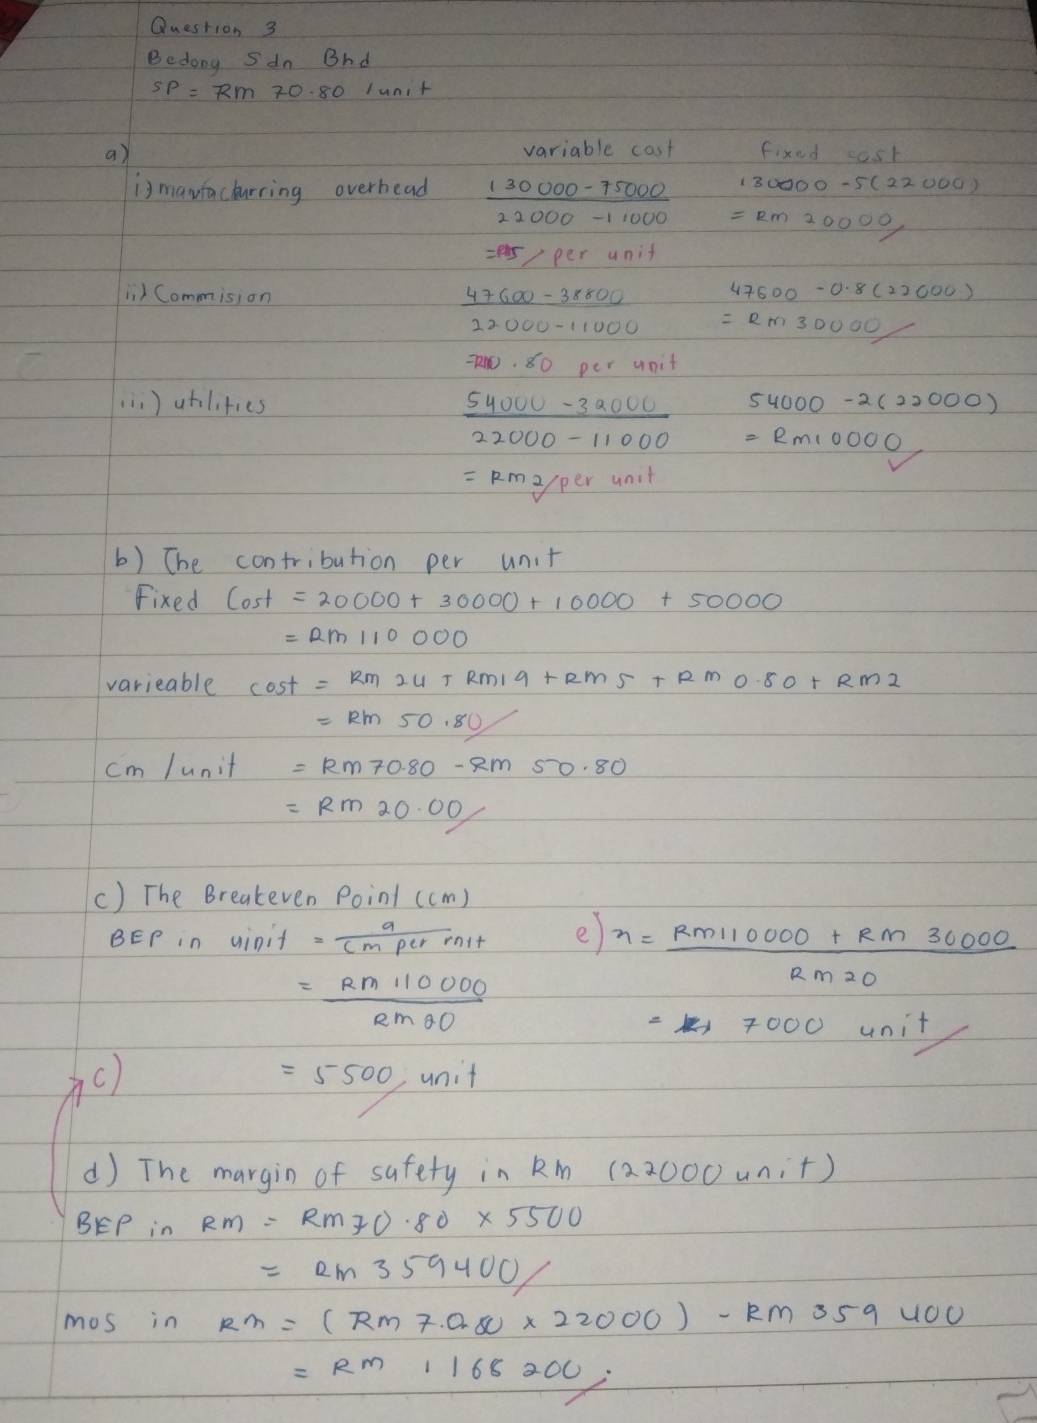 Question 3
Bedong Sdn Bhd
SP = RM 70.80 /unit
a)
variable cost fixed cost
i) manfacturring overhead 130000 - 75000 130000 - 5(22000)
22000 - 11000 = RM 20000
= RM5 per unit
ii) Commision 47600 - 38800 47600 - 0.8(22000)
22000 - 11000 = RM 30000
= RM0.80 per unit
iii) utilities 54000 - 32000 54000 - 2(22000)
22000 - 11000 = RM10000
= RM2 per unit
b) The contribution per unit
Fixed Cost = 20000 + 30000 + 10000 + 50000
= RM 110 000
varieable cost = RM 24 + RM19 + RM5 + RM 0.80 + RM2
= RM 50.80
cm /unit = RM 70.80 - RM 50.80
= RM 20.00
c) The Breakeven Point (cm)
BEP in uinit = a e) n = RM110000 + RM 30000
cm per init RM 20
= RM 110 000 = 7000 unit
RM 20
c) = 5500 unit
d) The margin of safety in RM (22000 unit)
BEP in RM = RM 70.80 × 5500
= RM 359400
mos in RM = (RM 7.0.80 × 22000) - RM 359 400
= RM 1168 200.